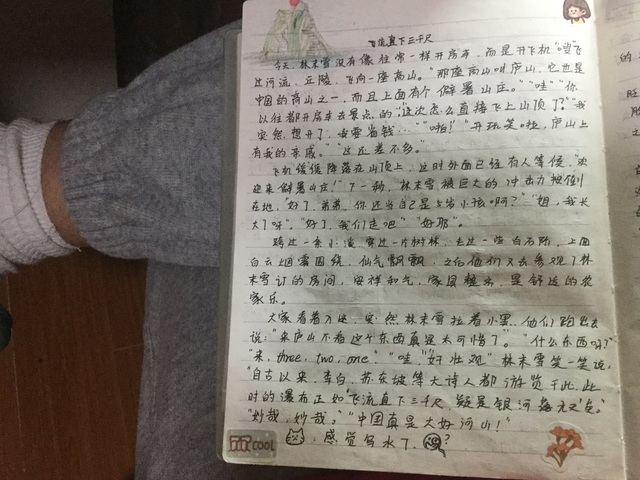 飞流直下三千尺
今天，林末雪没有像往常一样开房车，而是开飞机“嗖”飞
过河流、丘陵，飞向一座高山。“那座高山叫庐山，它也是
中国的高山之一，而且上面有个僻暑山庄。”“哇”“你
以往都开房车去景点的，这次怎么直接飞上山顶了？”“我
突然想开了，我要省钱…”“啪！”“开玩笑啦，庐山上
有我的亲戚。”“这还差不多。”
飞机缓缓降落在山顶上，这时外面已经有人等候，“欢
迎来僻暑山庄！”下一秒，林末雪被巨大的冲击力按倒
在地，“好了，弟弟，你还当自己是小孩啊？”“姐，我长
大了呀”，“好了，我们走吧”“好耶”。
跨过一条小溪，穿过一片树林，走过一些白石阶，上面
白云烟雾围绕，仙气飘飘，之后他们又去参观了林
末雪订的房间，安祥和气，家具整齐，是舒适的农
家乐。
大家看着入迷，突然林末雪拉着小墨，他们跑出去
说：“来庐山不看这个东西真是太可惜了。”“什么东西啊？”
“来，three，two，one”“哇”“好壮观”林末雪笑一笑说，
“自古以来，李白、苏东坡等大诗人都游览于此，此
时的瀑布正如‘飞流直下三千尺，疑是银河落九天’。”
“妙哉，妙哉。”“中国真是大好河山！”
COOL
感觉写水了，？